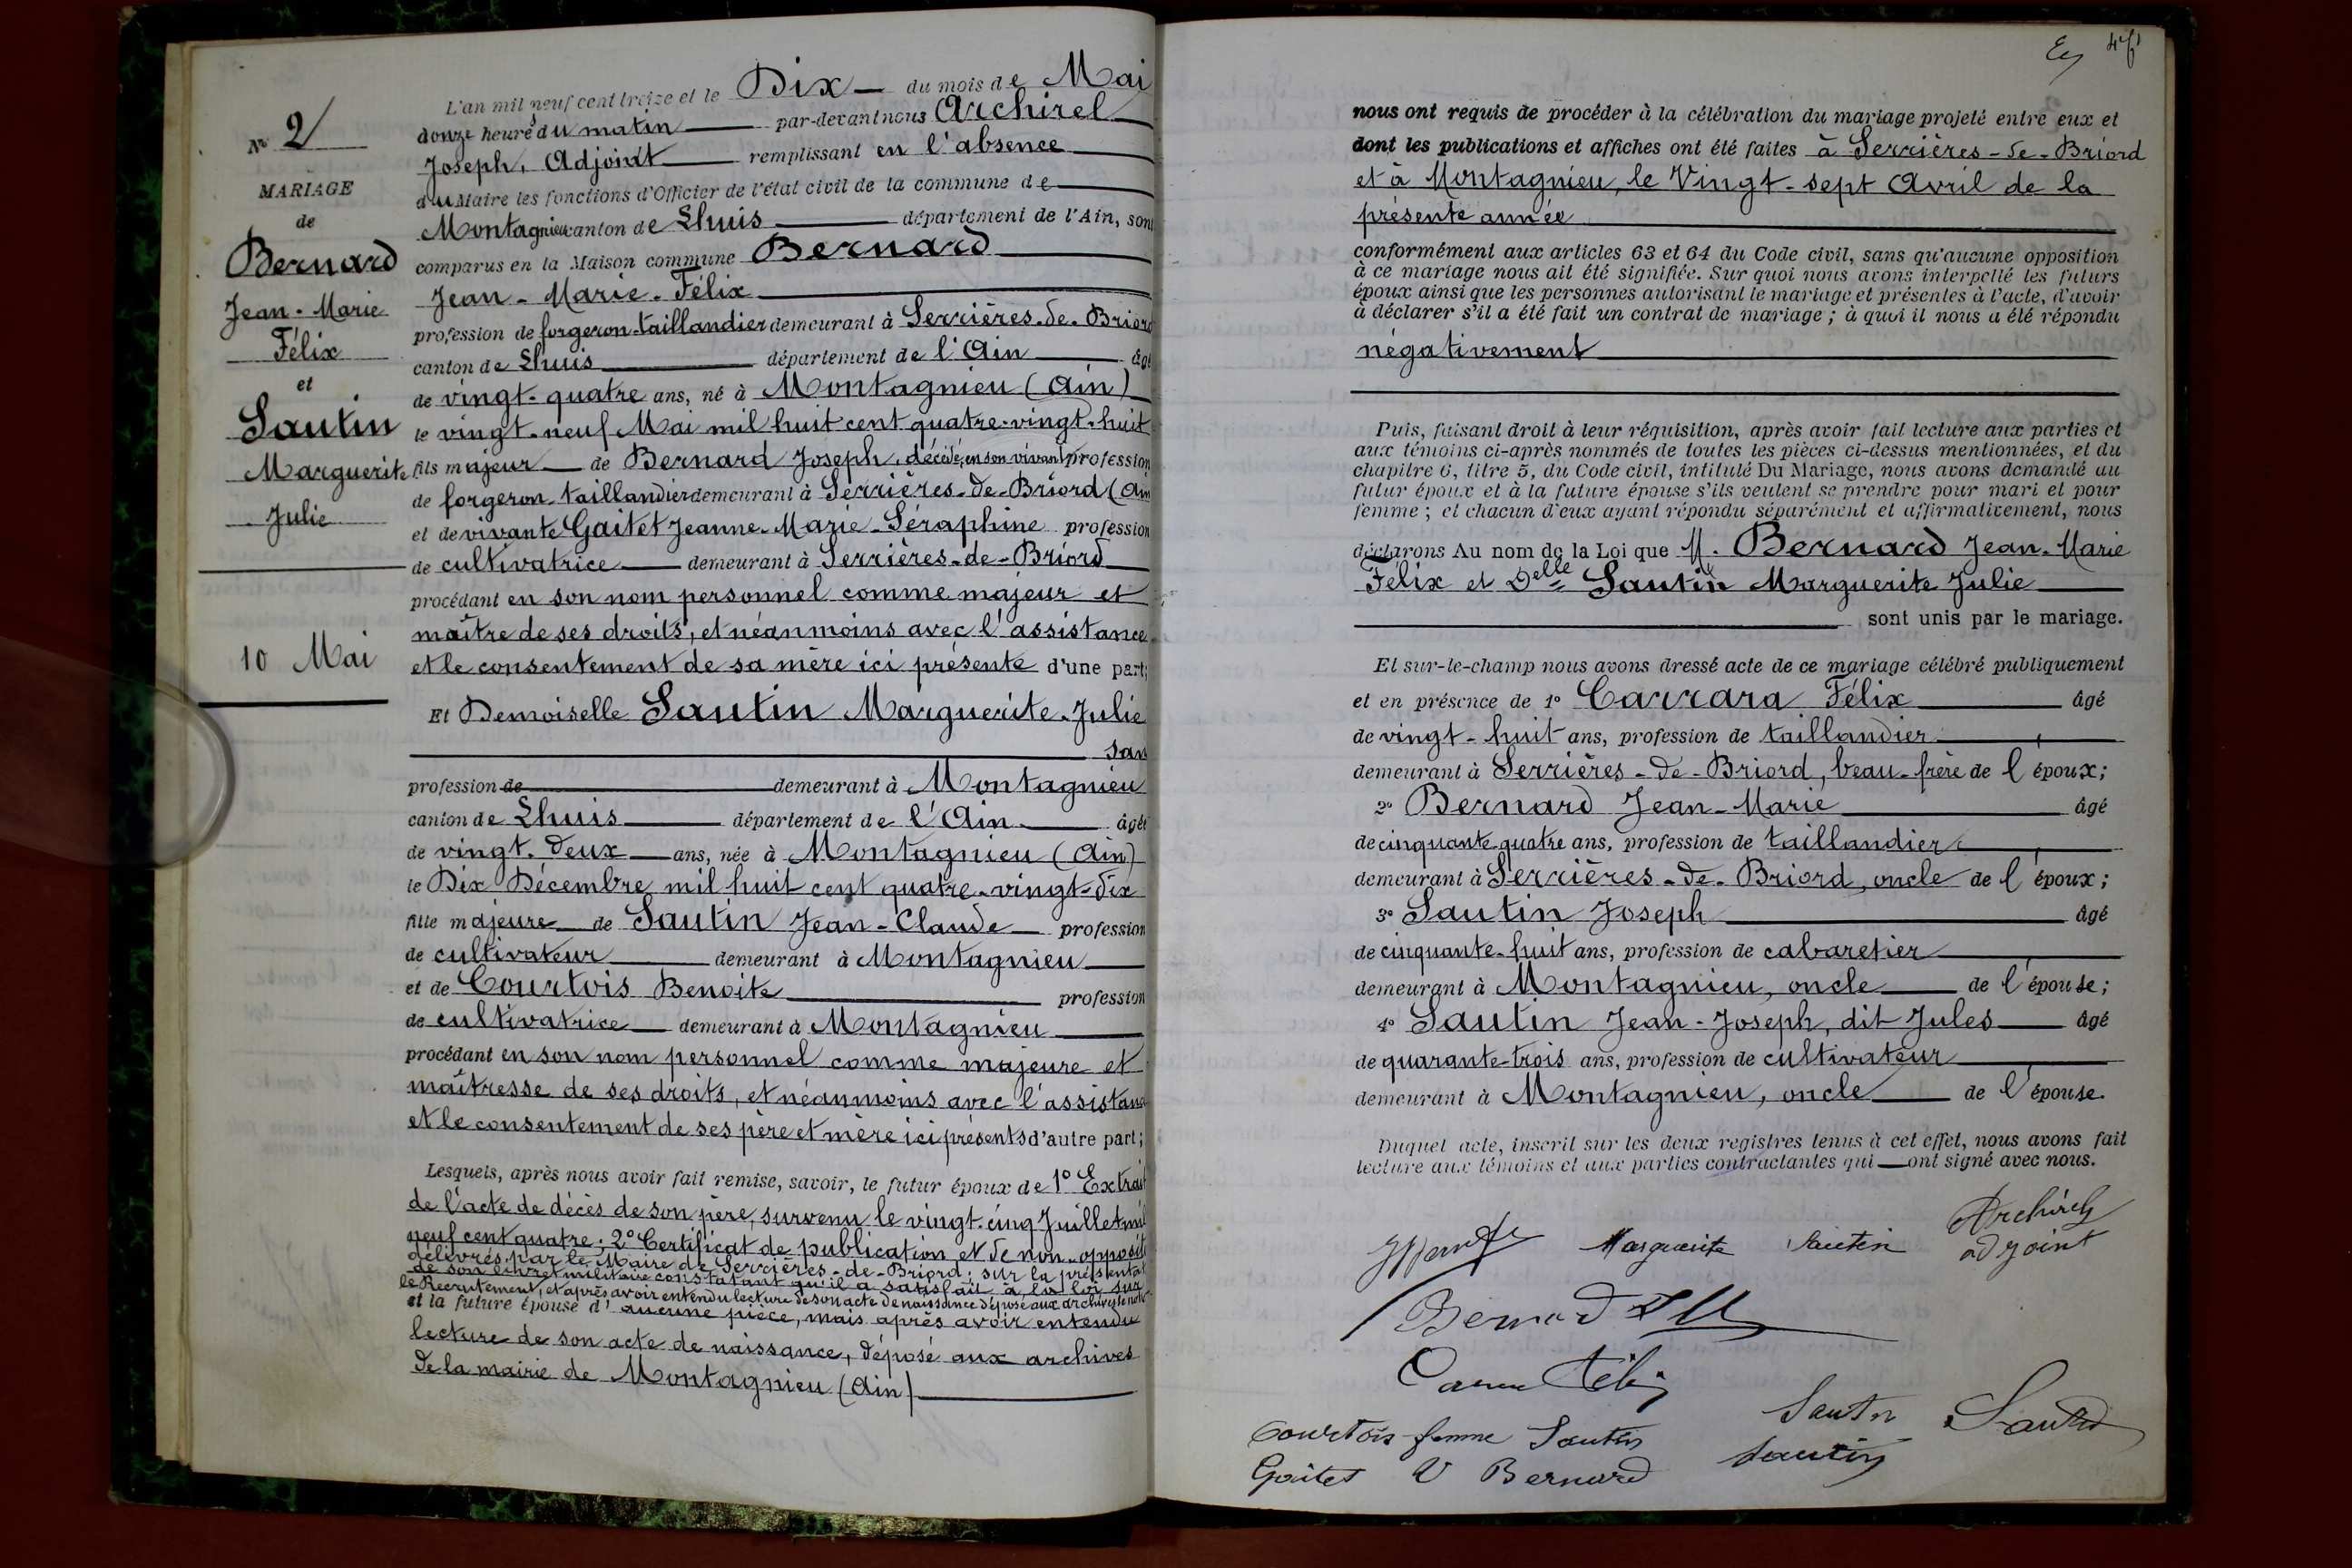 Nº 2
MARIAGE
de
Bernard
Jean-Marie
Félix
et
Sautin
Marguerite
Julie
10 Mai
L'an mil neuf cent treize et le Dix du mois de Mai
à onze heures du matin par-devant nous Archirel
Joseph, Adjoint remplissant en l'absence
du Maire les fonctions d'Officier de l'état civil de la commune de
Montagnieu canton de Lhuis département de l'Ain, sont
comparus en la Maison commune Bernard
Jean-Marie-Félix
profession de forgeron-taillandier demeurant à Serrières-de-Briord
canton de Lhuis département de l'Ain âgé
de vingt-quatre ans, né à Montagnieu (Ain)
le vingt-neuf Mai mil huit cent quatre-vingt-huit
fils majeur de Bernard Joseph, décédé, en son vivant profession
de forgeron-taillandier demeurant à Serrières-de-Briord (Ain
et de vivante Gaitet Jeanne-Marie-Séraphine profession
de cultivatrice demeurant à Serrières-de-Briord
procédant en son nom personnel comme majeur et
maître de ses droits, et néanmoins avec l'assistance
et le consentement de sa mère ici présente d'une part;
Et Demoiselle Sautin Marguerite-Julie
san
profession de demeurant à Montagnieu
canton de Lhuis département de l'Ain âgée
de vingt-deux ans, née à Montagnieu (Ain)
le Dix Décembre mil huit cent quatre-vingt-dix
fille majeure de Sautin Jean-Claude profession
de cultivateur demeurant à Montagnieu
et de Courtois Benoite profession
de cultivatrice demeurant à Montagnieu
procédant en son nom personnel comme majeure et
maîtresse de ses droits, et néanmoins avec l'assistance
et le consentement de ses père et mère ici présents d'autre part;
Lesquels, après nous avoir fait remise, savoir, le futur époux de 1º Extrait
de l'acte de décès de son père, survenu le vingt-cinq Juillet mil
neuf cent quatre; 2º Certificat de publication et de non-opposit
délivrés par le Maire de Serrières-de-Briord; sur la présentat
de son livret militaire constatant qu'il a satisfait à la loi sur
le Recrutement, et après avoir entendu lecture de son acte de naissance déposé aux archives de notre
et la future épouse d'aucune pièce, mais après avoir entendu
lecture de son acte de naissance, déposé aux archives
de la mairie de Montagnieu (Ain)
47
nous ont requis de procéder à la célébration du mariage projeté entre eux et
dont les publications et affiches ont été faites à Serrières-de-Briord
et à Montagnieu, le Vingt-sept Avril de la
présente année
conformément aux articles 63 et 64 du Code civil, sans qu'aucune opposition
à ce mariage nous ait été signifiée. Sur quoi nous avons interpellé les futurs
époux ainsi que les personnes autorisant le mariage et présentes à l'acte, d'avoir
à déclarer s'il a été fait un contrat de mariage; à quoi il nous a été répondu
négativement
Puis, faisant droit à leur réquisition, après avoir fait lecture aux parties et
aux témoins ci-après nommés de toutes les pièces ci-dessus mentionnées, et du
chapitre 6, titre 5, du Code civil, intitulé Du Mariage, nous avons demandé au
futur époux et à la future épouse s'ils veulent se prendre pour mari et pour
femme; et chacun d'eux ayant répondu séparément et affirmativement, nous
déclarons Au nom de la Loi que M. Bernard Jean-Marie
Félix et Delle Sautin Marguerite Julie
sont unis par le mariage.
Et sur-le-champ nous avons dressé acte de ce mariage célébré publiquement
et en présence de 1º Carrara Félix âgé
de vingt-huit ans, profession de taillandier,
demeurant à Serrières-de-Briord, beau-frère de l'époux;
2º Bernard Jean-Marie âgé
de cinquante-quatre ans, profession de taillandier,
demeurant à Serrières-de-Briord, oncle de l'époux;
3º Sautin Joseph âgé
de cinquante-huit ans, profession de cabaretier
demeurant à Montagnieu, oncle de l'épouse;
4º Sautin Jean-Joseph, dit Jules âgé
de quarante-trois ans, profession de cultivateur
demeurant à Montagnieu, oncle de l'épouse.
Duquel acte, inscrit sur les deux registres tenus à cet effet, nous avons fait
lecture aux témoins et aux parties contractantes qui ont signé avec nous.
Marguerite Sautin Archirel
adjoint
Bernard JM
Carrara Félix
Courtois femme Sautin Sautin Sautin
Gaitet V Bernard Sautin